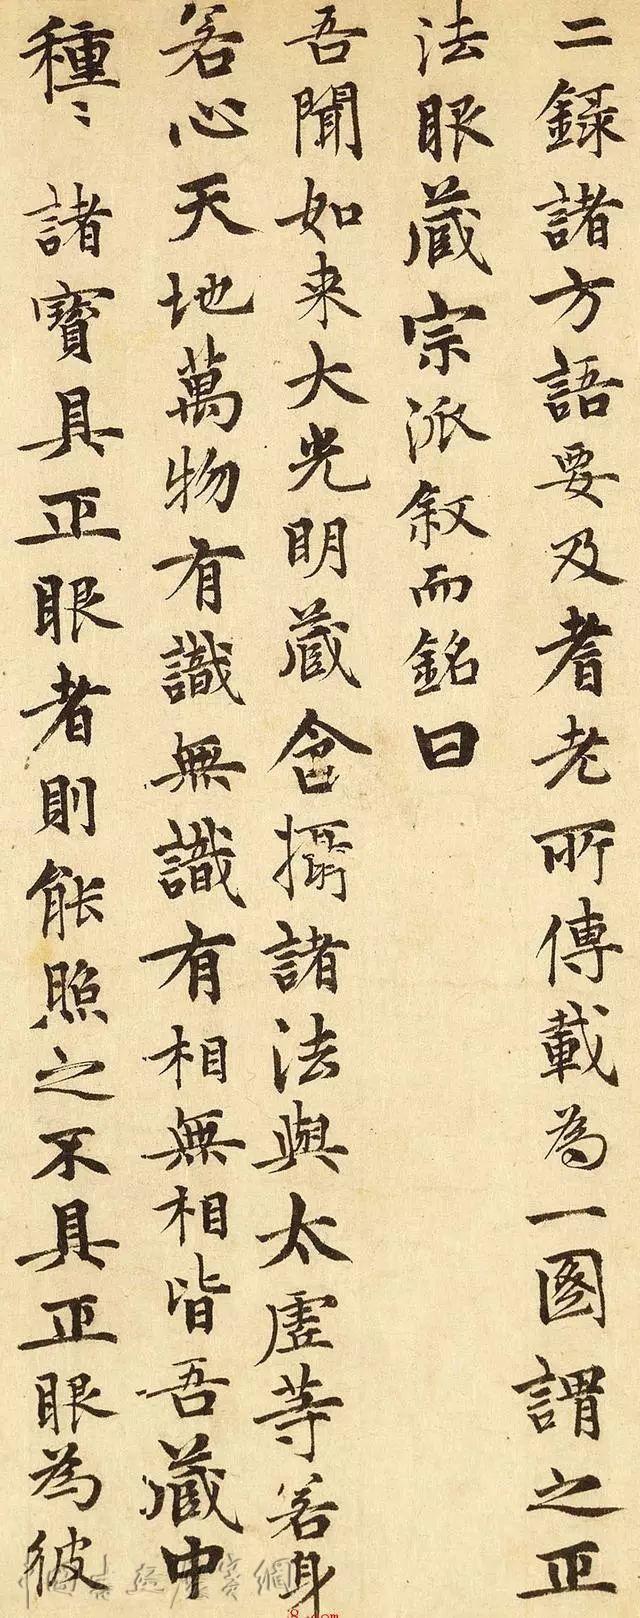 二録諸方語要及耆老所傳載為一圖謂之正
法眼蔵宗派敘而銘曰
吾聞如来大光明蔵含攝諸法與太虛等若身
若心天地萬物有識無識有相無相皆吾蔵中
種〻諸寳具正眼者則能照之不具正眼為彼